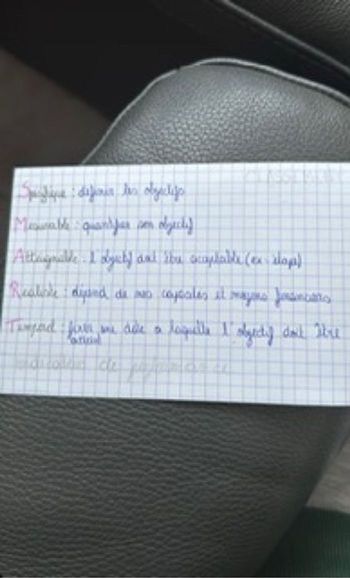 Spécifique : définir les objectifs
Mesurable : quantifier son objectif
Atteignable : l'objectif doit être acceptable (ex : étape)
Réaliste : dépend de nos capacités et moyens financiers
Temporel : fixer une date a laquelle l'objectif doit être
atteint
indicateur de performance